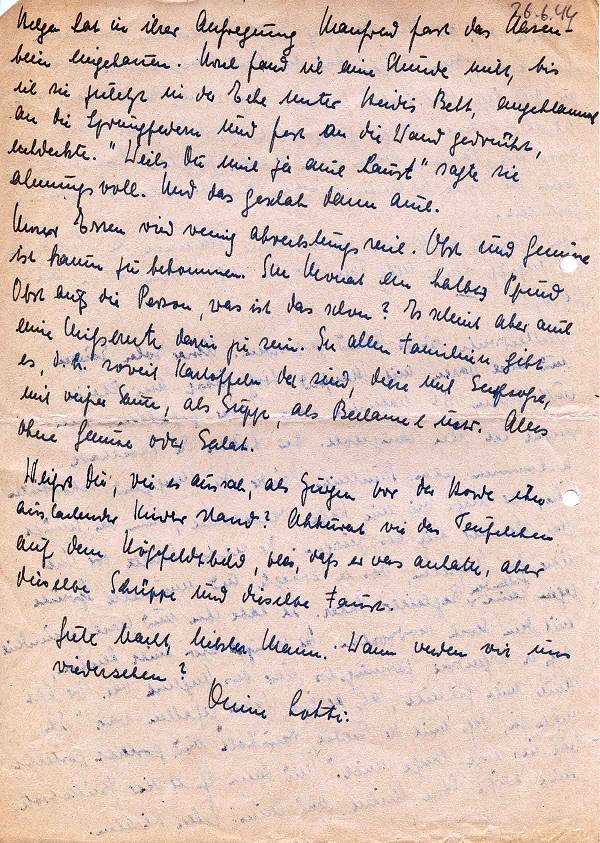 26.6.44
Helga hat in ihrer Aufregung Manfred fast das Nasen-
bein eingehauen. Und fand sie eine Stunde nicht, bis
ich sie zuletzt in der Ecke unter Heidis Bett, angeklammert
an die Sprungfedern und fest an die Wand gedrückt,
entdeckte. "Weils Du mich ja auch haust" sagte sie
ahnungsvoll. Und das geschah dann auch.
Unser Essen wird wenig abwechslungsreich. Obst und Gemüse
ist kaum zu bekommen. Im Monat ein halbes Pfund
Obst auf die Person, was ist das schon? Es scheint aber auch
eine Missernte darin zu sein. In allen Familien gibt
es, d.h. soweit Kartoffeln da sind, diese mit Senfsoße,
mit weißer Sauce, als Suppe, als Bechamel usw. Alles
ohne Gemüse oder Salat.
Weißt Du, wie es aussah, als Jürgen vor der Horde
auslachender Kinder stand? Akkurat wie das Teufelchen
auf dem bild, bloß, daß er was anhatte, aber
dieselbe Schüppe und dieselbe Faust.
Gute Nacht, liebster Mann. Wann werden wir uns
wiedersehen?
Deine Lotti.